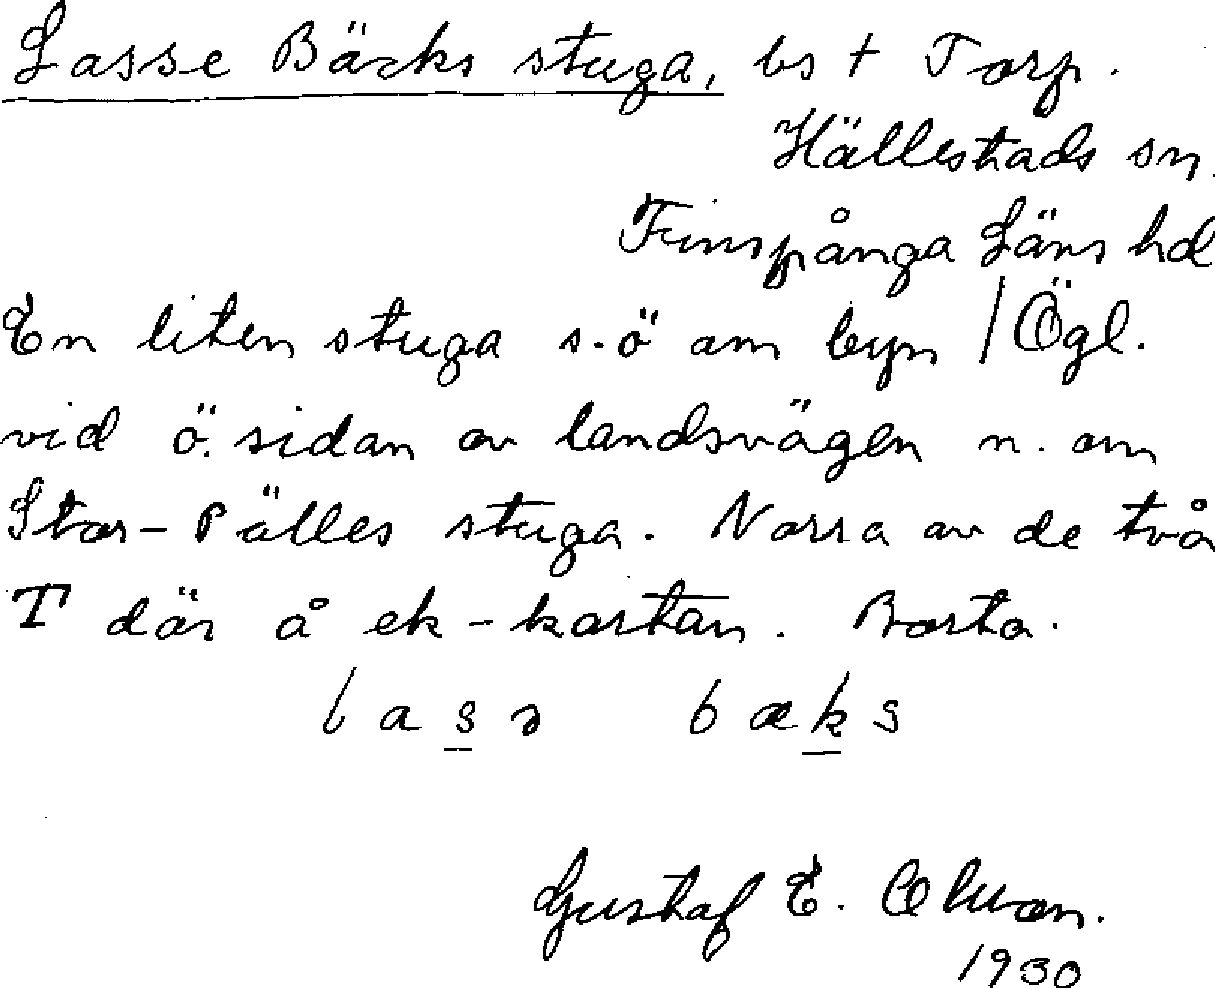 Lasse Bäcks stuga, bs t Torp.
Hällestads sn.
Finspånga Läns hd
En liten stuga s.ö om byn / Ögl.
vid ö. sidan av landsvägen n. om
Stor-Pälles stuga. Norra av de två
T där å ek-kartan. Borta.
lasə bæks
Gustaf E. Olson.
1930